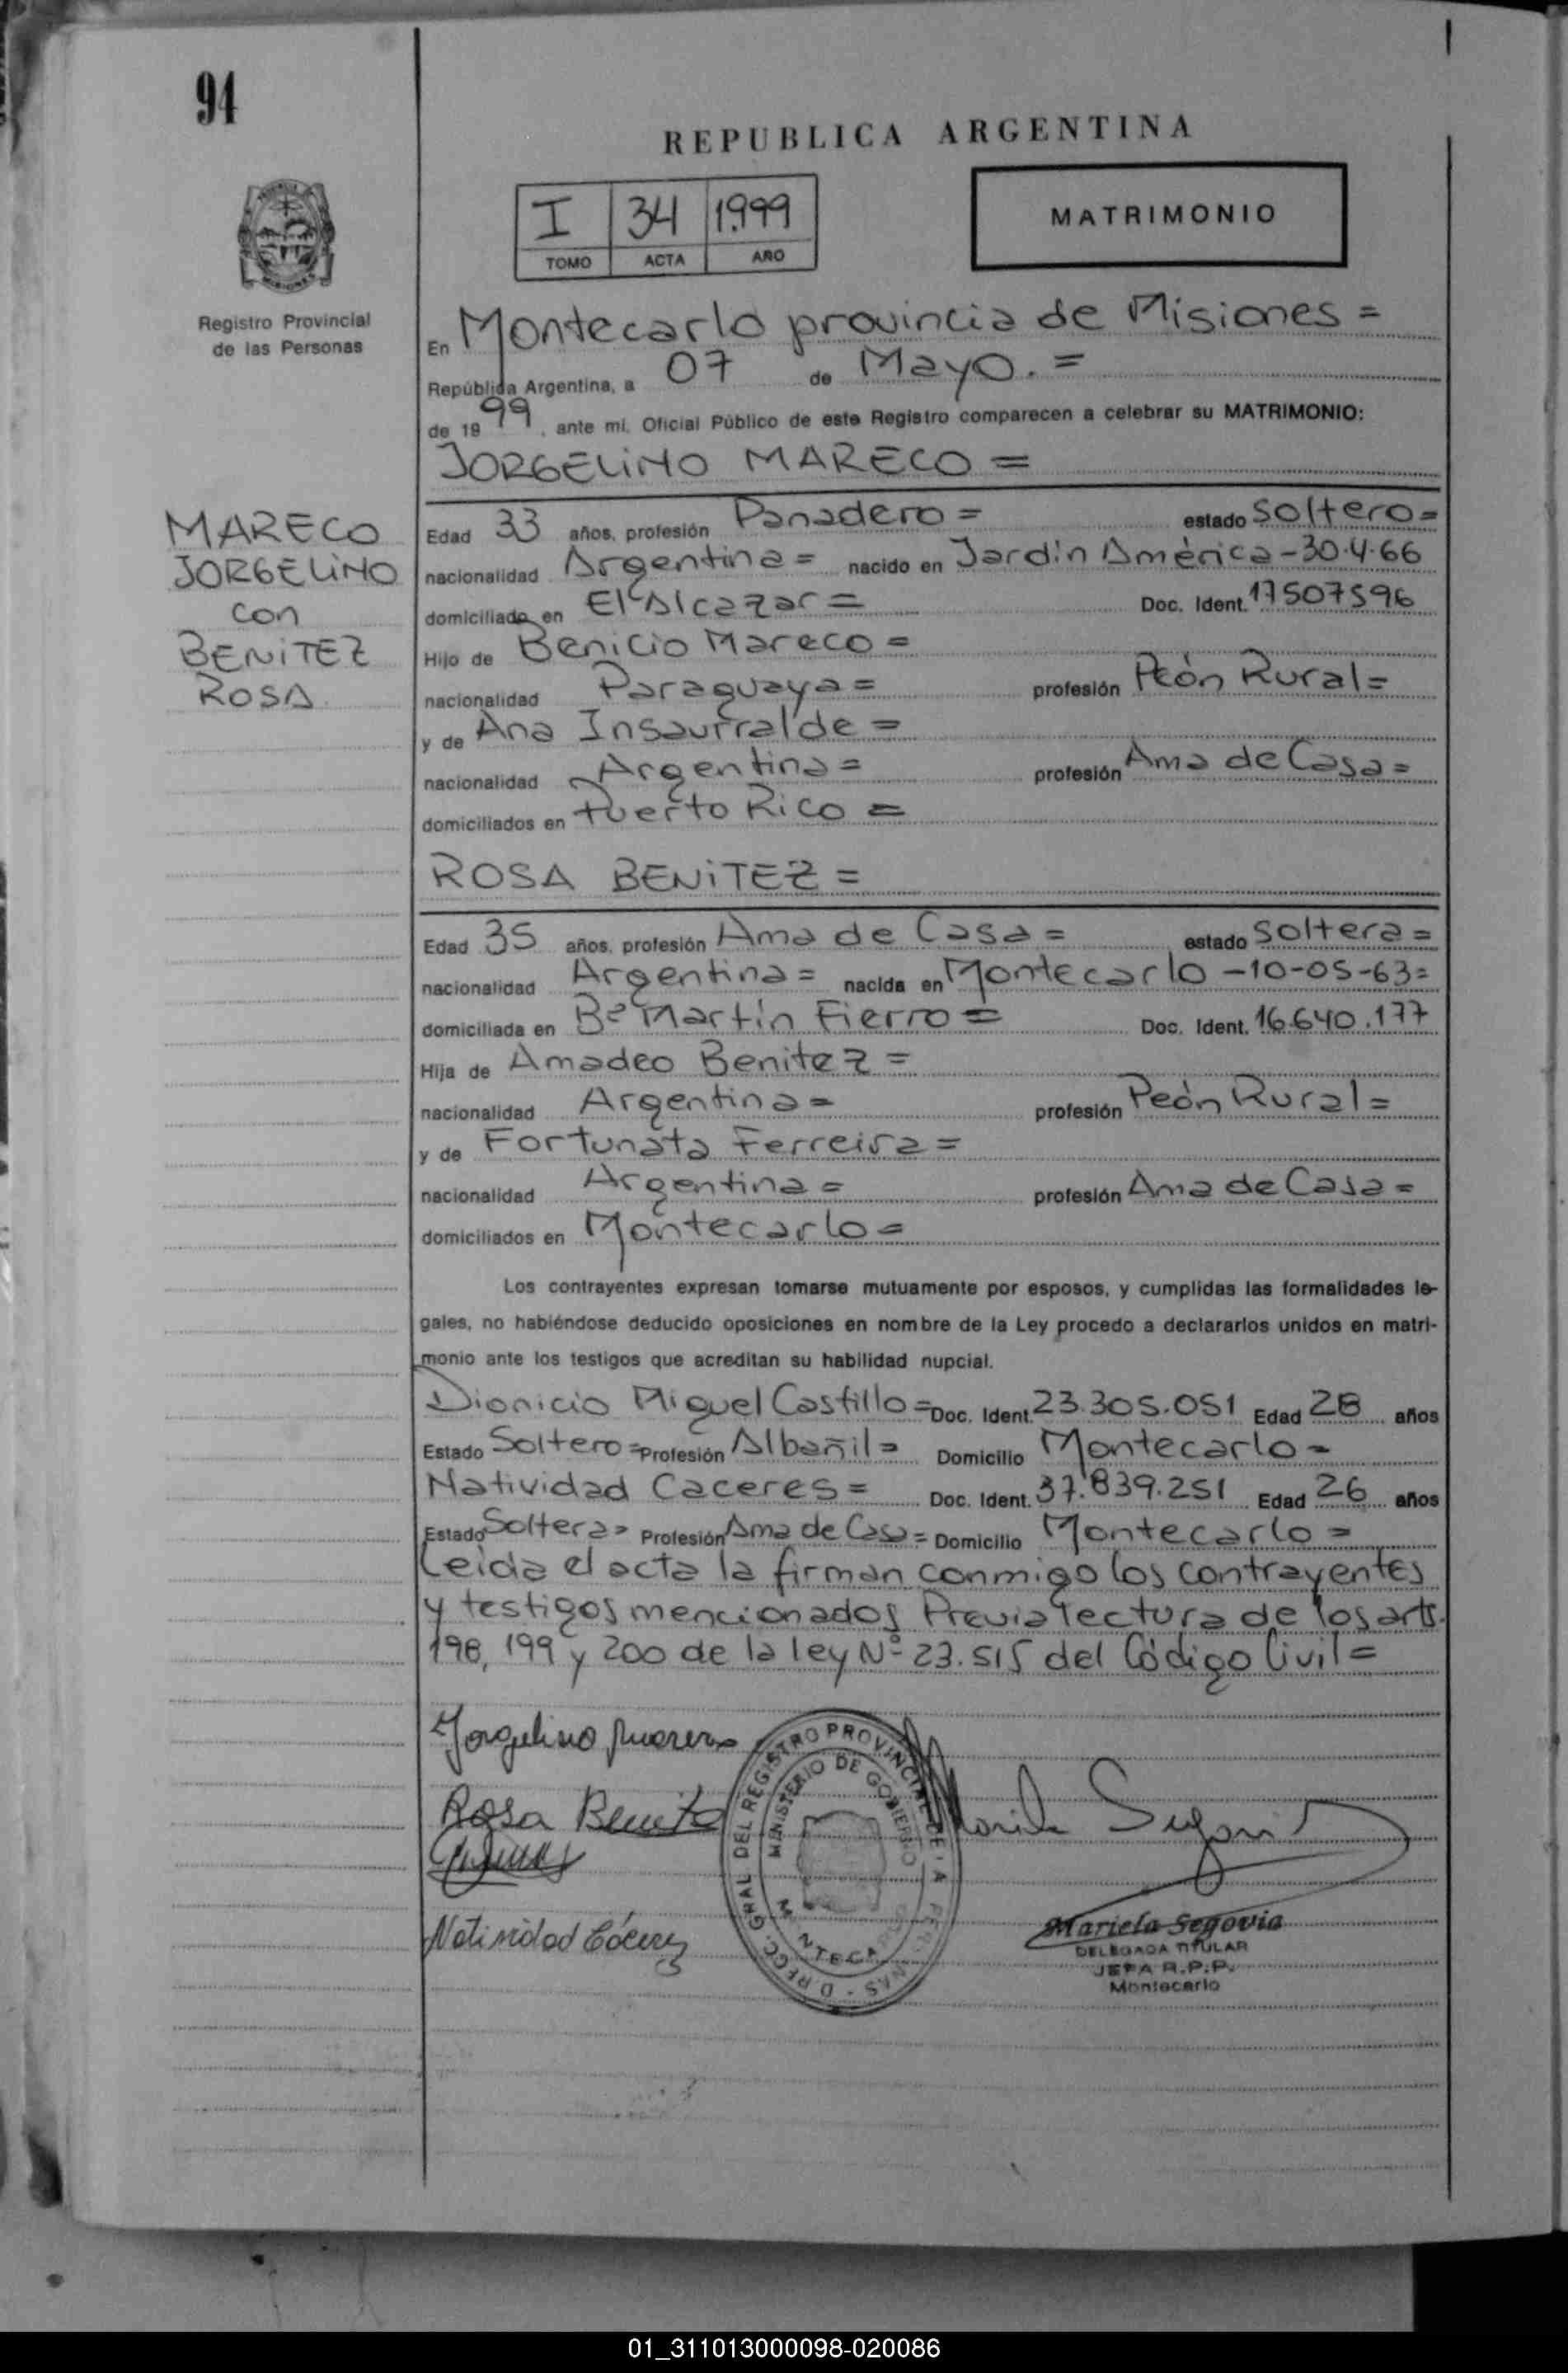 94
REPUBLICA ARGENTINA
I 34 1999
TOMO ACTA AÑO
MATRIMONIO
Registro Provincial
de las Personas
En Montecarlo provincia de Misiones =
República Argentina, a 07 de Mayo. =
de 19 99, ante mi, Oficial Público de este Registro comparecen a celebrar su MATRIMONIO:
JORGELINO MARECO =
MARECO
JORGELINO
con
BENITEZ
ROSA
Edad 33 años, profesión Panadero = estado Soltero =
nacionalidad Argentina = nacido en Jardín América - 30.4.66
domiciliado en El Alcazar = Doc. Ident. 17507596
Hijo de Benicio Mareco =
nacionalidad Paraguaya = profesión Peón Rural =
y de Ana Insaurralde =
nacionalidad Argentina = profesión Ama de Casa =
domiciliados en Puerto Rico =
ROSA BENITEZ =
Edad 35 años, profesión Ama de Casa = estado Soltera =
nacionalidad Argentina = nacida en Montecarlo - 10-05-63 =
domiciliada en Bº Martín Fierro = Doc. Ident. 16.640.177
Hija de Amadeo Benitez =
nacionalidad Argentina = profesión Peón Rural =
y de Fortunata Ferreira =
nacionalidad Argentina = profesión Ama de Casa =
domiciliados en Montecarlo =
Los contrayentes expresan tomarse mutuamente por esposos, y cumplidas las formalidades le-
gales, no habiéndose deducido oposiciones en nombre de la Ley procedo a declararlos unidos en matri-
monio ante los testigos que acreditan su habilidad nupcial.
Dionicio Miguel Castillo = Doc. Ident. 23.305.051 Edad 28 años
Estado Soltero = Profesión Albañil = Domicilio Montecarlo =
Natividad Caceres = Doc. Ident. 37.839.251 Edad 26 años
Estado Soltera = Profesión Ama de Casa = Domicilio Montecarlo =
Leida el acta la firman conmigo los contrayentes
y testigos mencionados Previa lectura de los arts.
198, 199 y 200 de la ley Nº 23.515 del Código Civil =
Jorgelino Mareco
Rosa Benitez
Natividad Cáceres
D. RECC. GRAL DEL REGISTRO PROVINCIAL DE LA PERSONAS
MINISTERIO DE GOBIERNO
MONTECARLO
Mariela Segovia
DELEGADA TITULAR
JEFA R.P.P.
Montecarlo
01_311013000098-020086